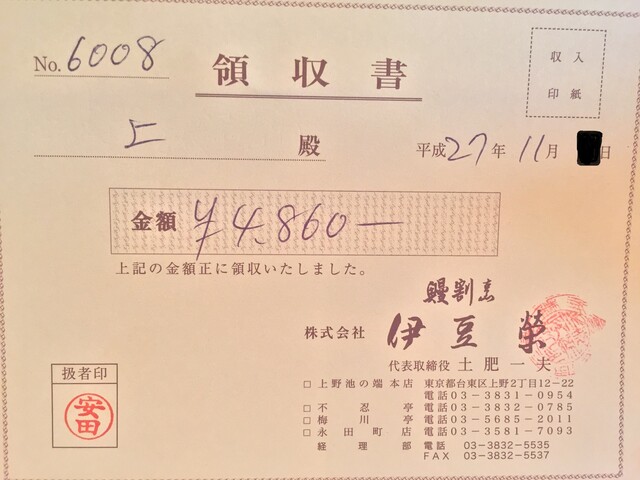 No. 6008
領収書
収入
印紙
上 殿
平成27年11月 日
金額 ¥4,860—
上記の金額正に領収いたしました。
鰻割烹
株式会社 伊豆榮
代表取締役 土肥一夫
扱者印
安田
□ 上野池の端本店 東京都台東区上野2丁目12-22
電話03-3831-0954
□ 不忍亭 電話03-3832-0785
□ 梅川亭 電話03-5685-2011
□ 永田町店 電話03-3581-7093
経理部 電話 03-3832-5535
FAX 03-3832-5537